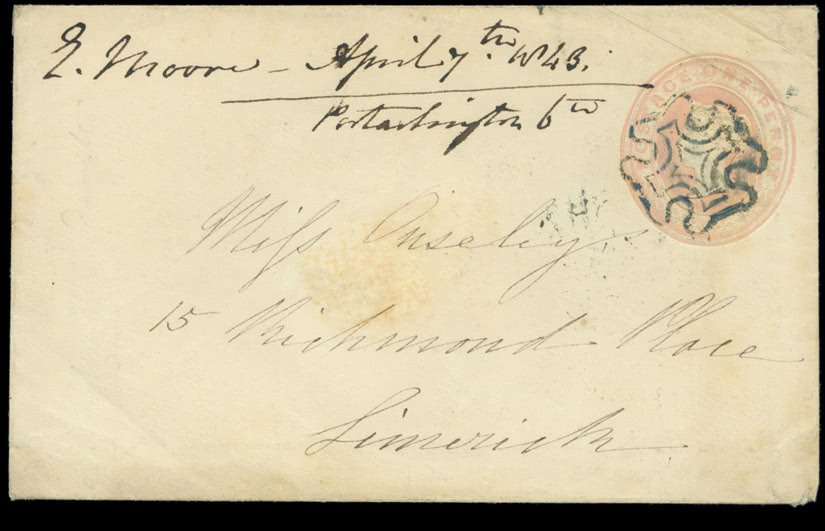 E. Moore - April 7th. 1843.
Portarlington 6th
POSTAGE ONE PENNY
Miss Ouseley,
15 Richmond Place
Limerick